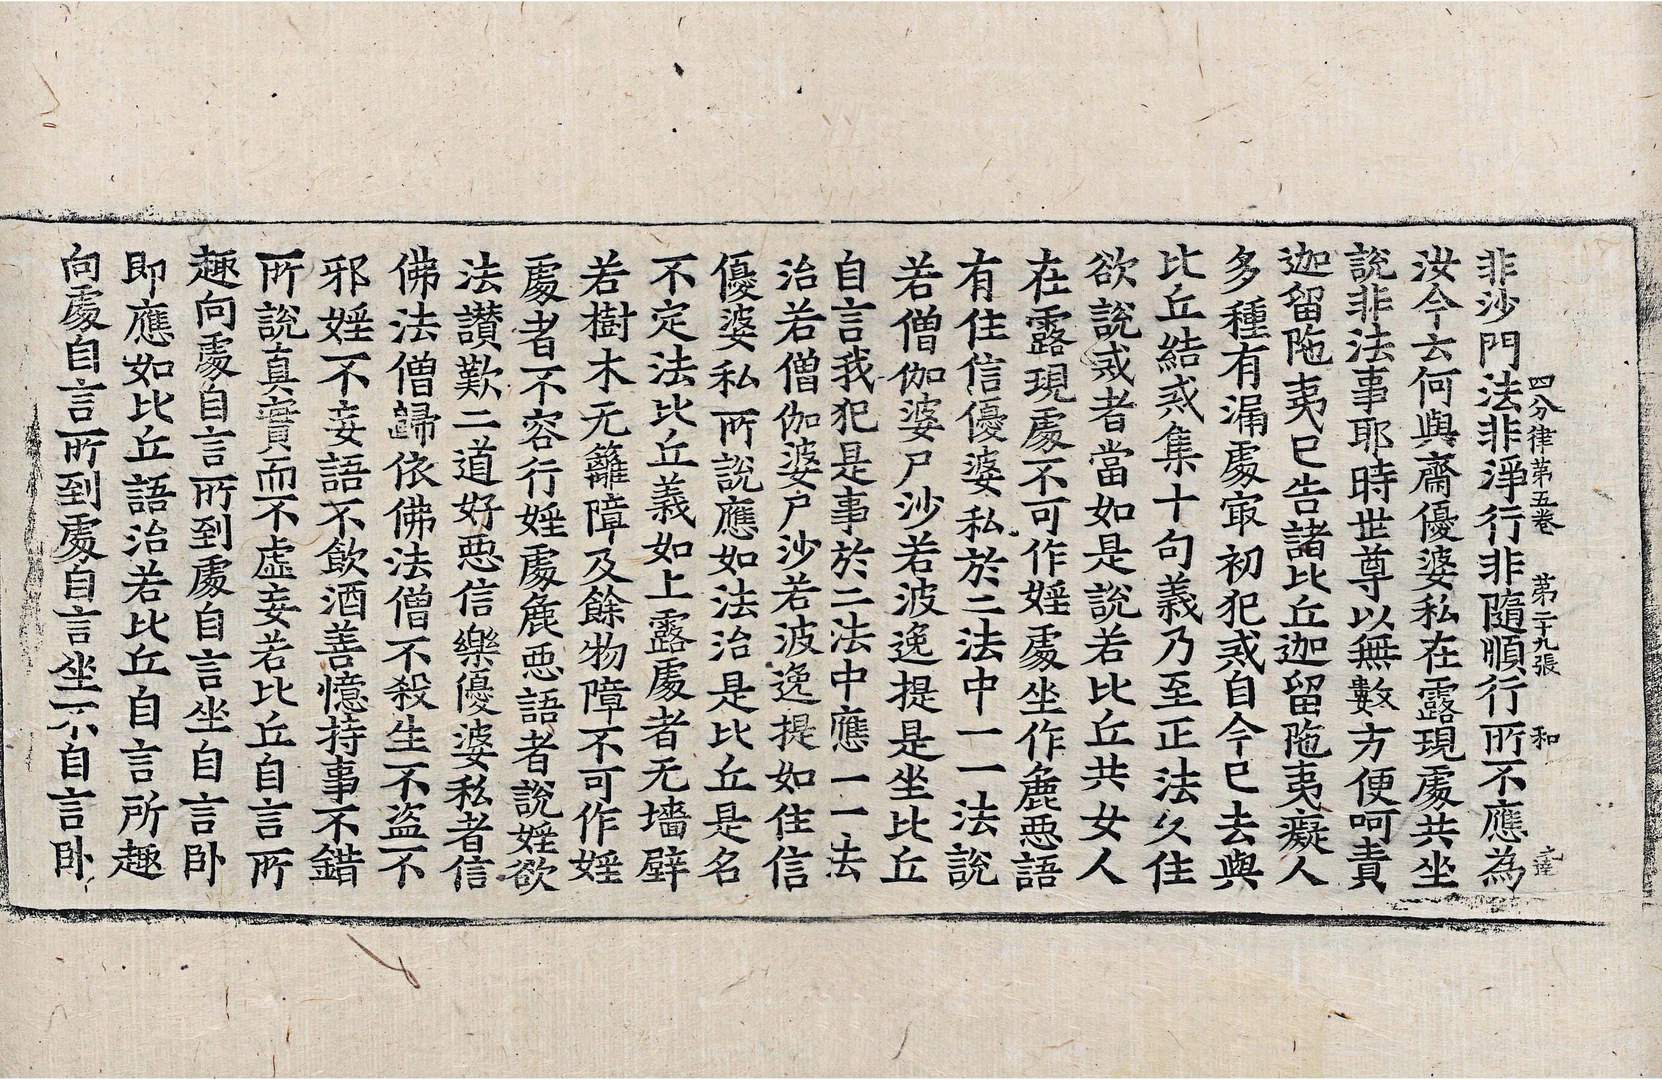 四分律第五卷 第二十九張 和
非沙門法非淨行非隨順行所不應為
汝今云何與齋優婆私在露現處共坐
說非法事耶時世尊以無數方便呵責
迦留陁夷已告諸比丘迦留陁夷癡人
多種有漏處㝡初犯戒自今已去與
比丘結戒集十句義乃至正法久住
欲說戒者當如是說若比丘共女人
在露現處不可作婬處坐作麁惡語
有住信優婆私於二法中一一法說
若僧伽婆尸沙若波逸提是坐比丘
自言我犯是事於二法中應一一法
治若僧伽婆尸沙若波逸提如住信
優婆私所說應如法治是比丘是名
不定法比丘義如上露處者无墻壁
若樹木无籬障及餘物障不可作婬
處者不容行婬處麁惡語者說婬欲
法讃歎二道好惡信樂優婆私者信
佛法僧歸依佛法僧不殺生不盜不
邪婬不妄語不飲酒善憶持事不錯
所說真實而不虛妄若比丘自言所
趣向處自言所到處自言坐自言卧
即應如比丘語治若比丘自言所趣
向處自言所到處自言坐不自言卧